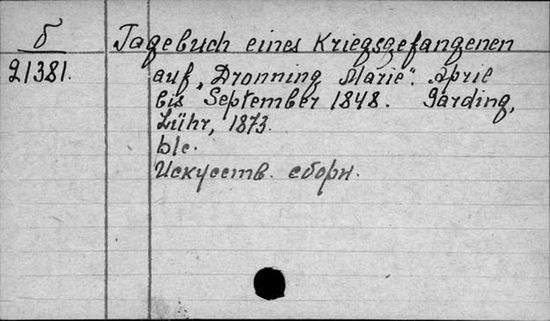 б
21381.
Tagebuch eines Kriegsgefangenen
auf „Dronning Marie“. April
bis September 1848. Garding,
Lühr, 1873.
blc.
Искусств. сборн.